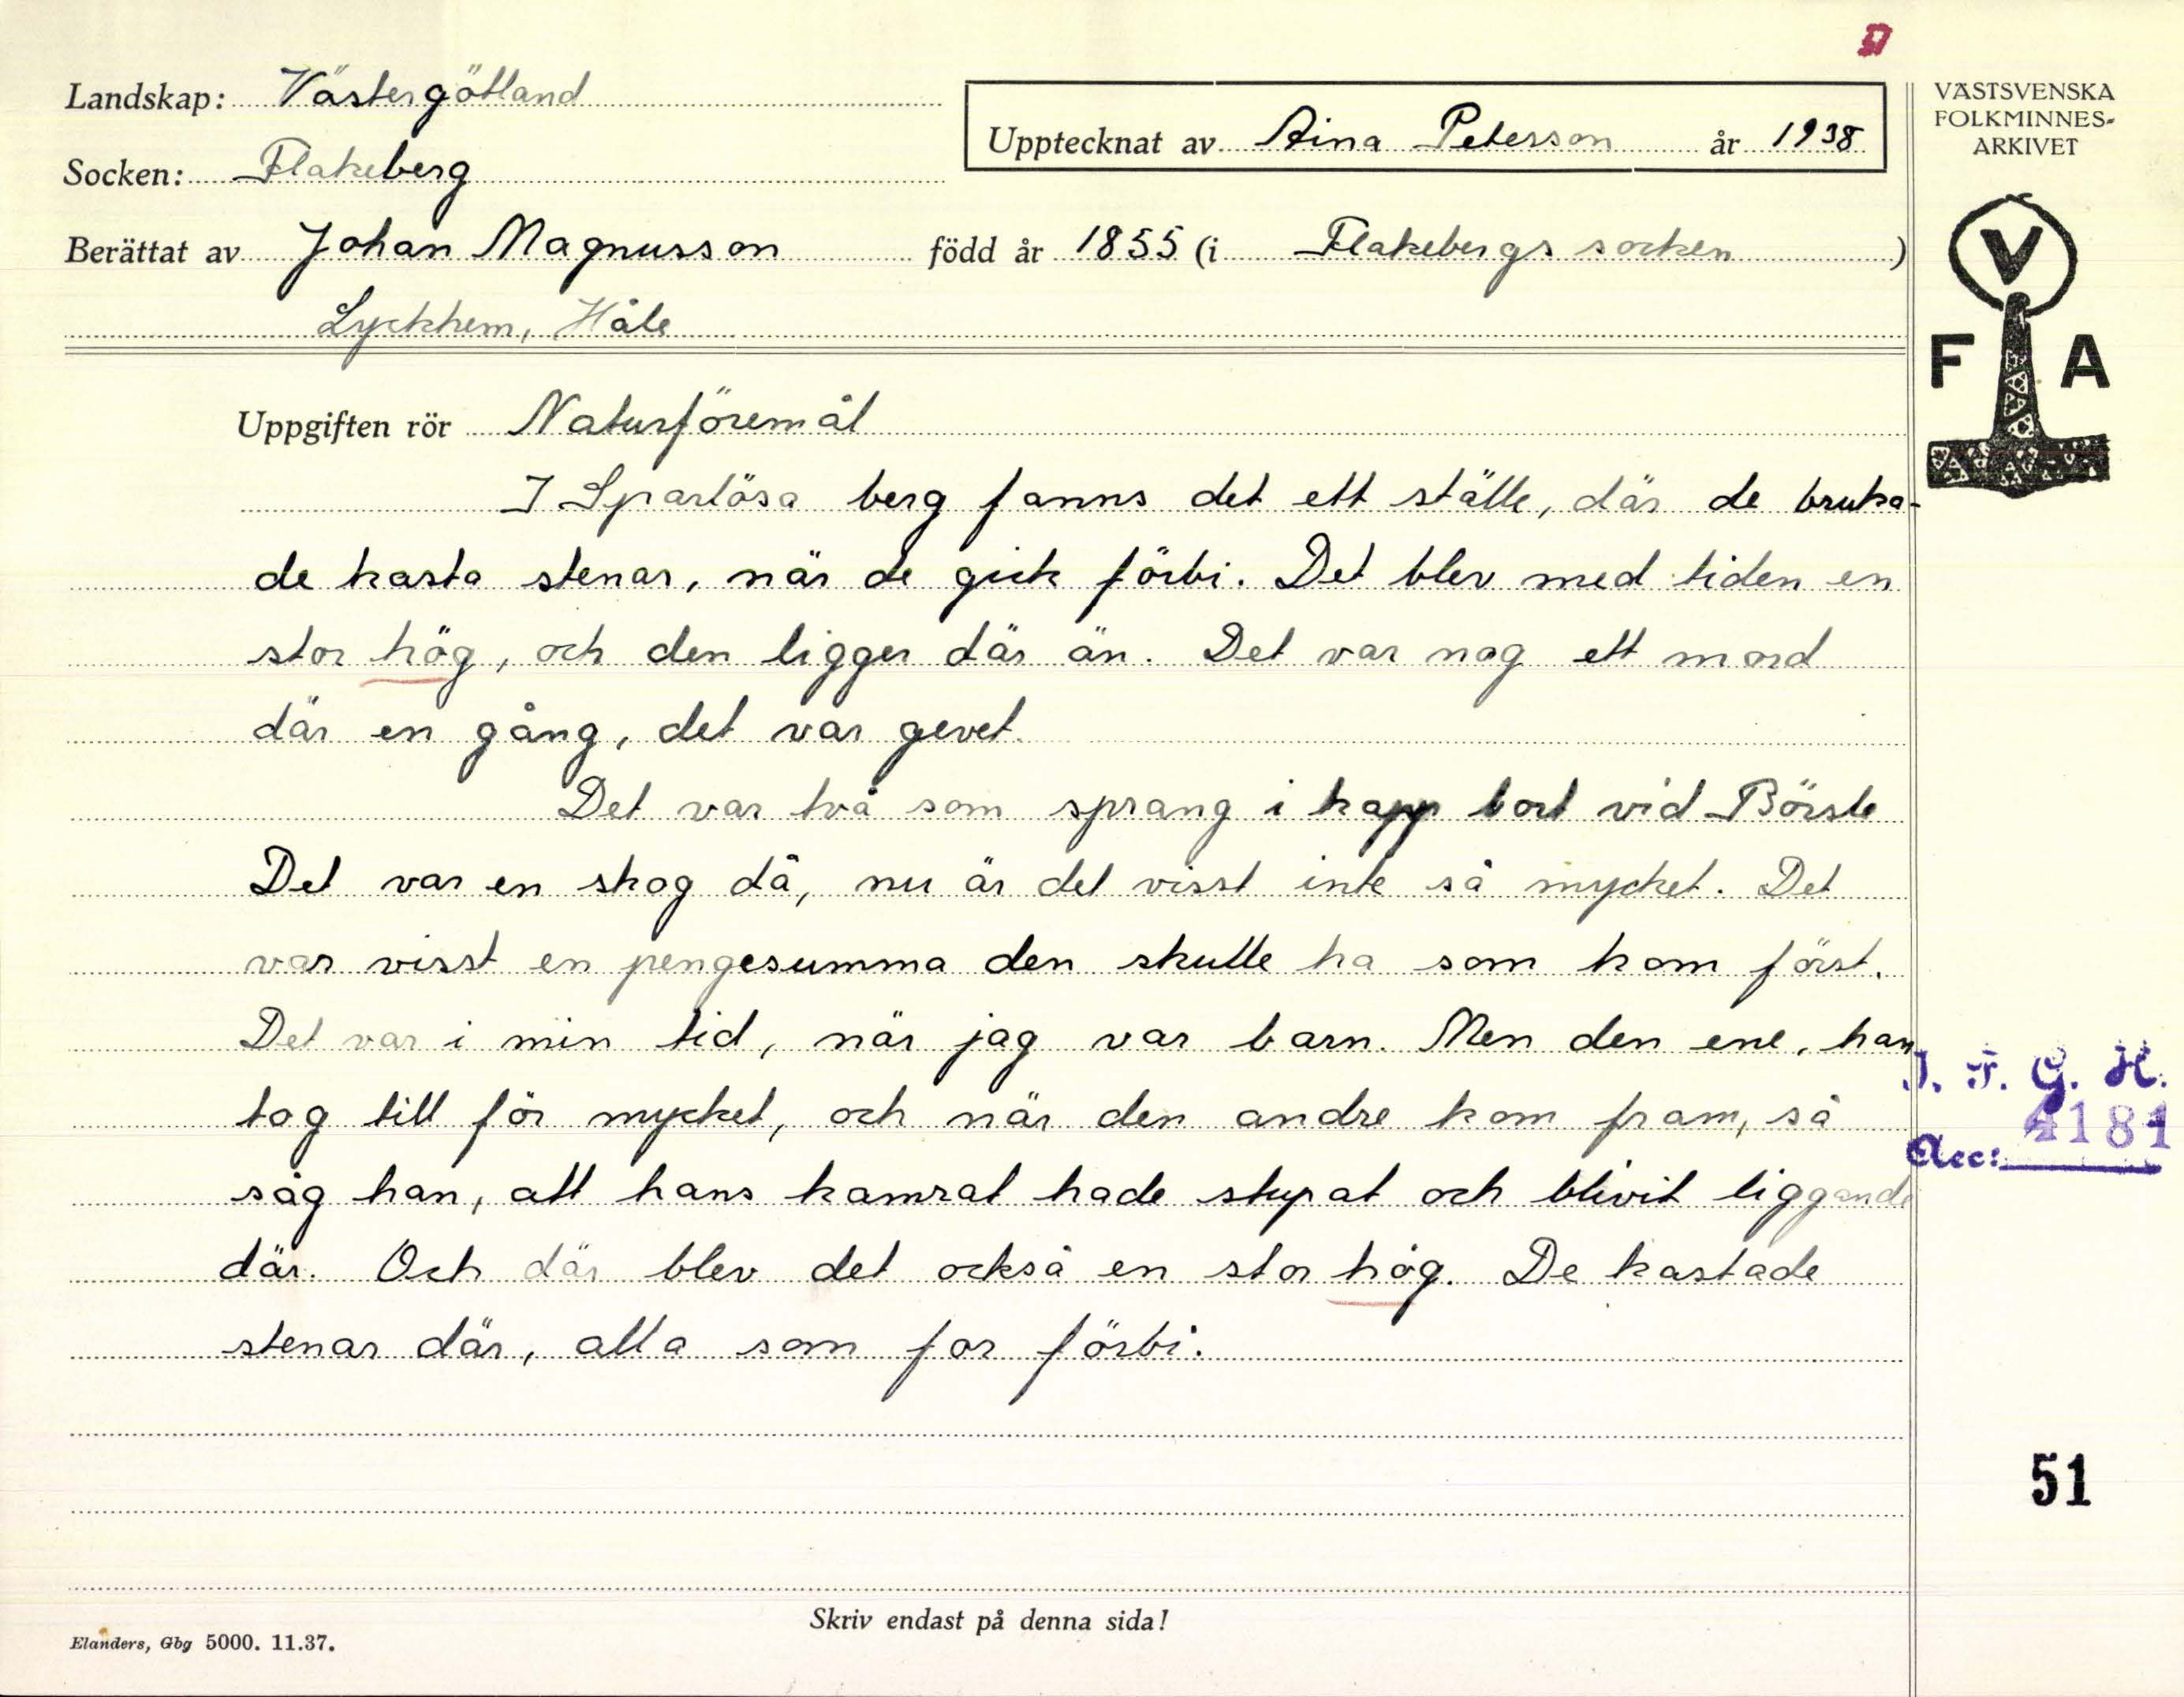 Landskap: Västergötland
Upptecknat av Aina Petersson år 1938
Socken: Flakeberg
Berättat av Johan Magnusson född år 1855 (i Flakebergs socken)
Lyckhem, Håle
VÄSTSVENSKA
FOLKMINNES-
ARKIVET
V
F A
Uppgiften rör Naturföremål
I Sparlösa berg fanns det ett ställe, där de bruka-
de kasta stenar, när de gick förbi. Det blev med tiden en
stor hög, och den ligger där än. Det var nog ett mord
där en gång, det var gevet.
Det var två som sprang i kapp bort vid Börsle
Det var en skog då, nu är det visst inte så mycket. Det
var visst en pengesumma den skulle ha som kom först.
Det var i min tid, när jag var barn. Men den ene, han
tog till för mycket, och när den andre kom fram, så
såg han, att hans kamrat hade stupat och blivit liggande
där. Och där blev det också en stor hög. De kastade
stenar där, alla som for förbi.
I. F. G. H.
Acc: 4181
51
Skriv endast på denna sida!
Elanders, Gbg 5000. 11.37.